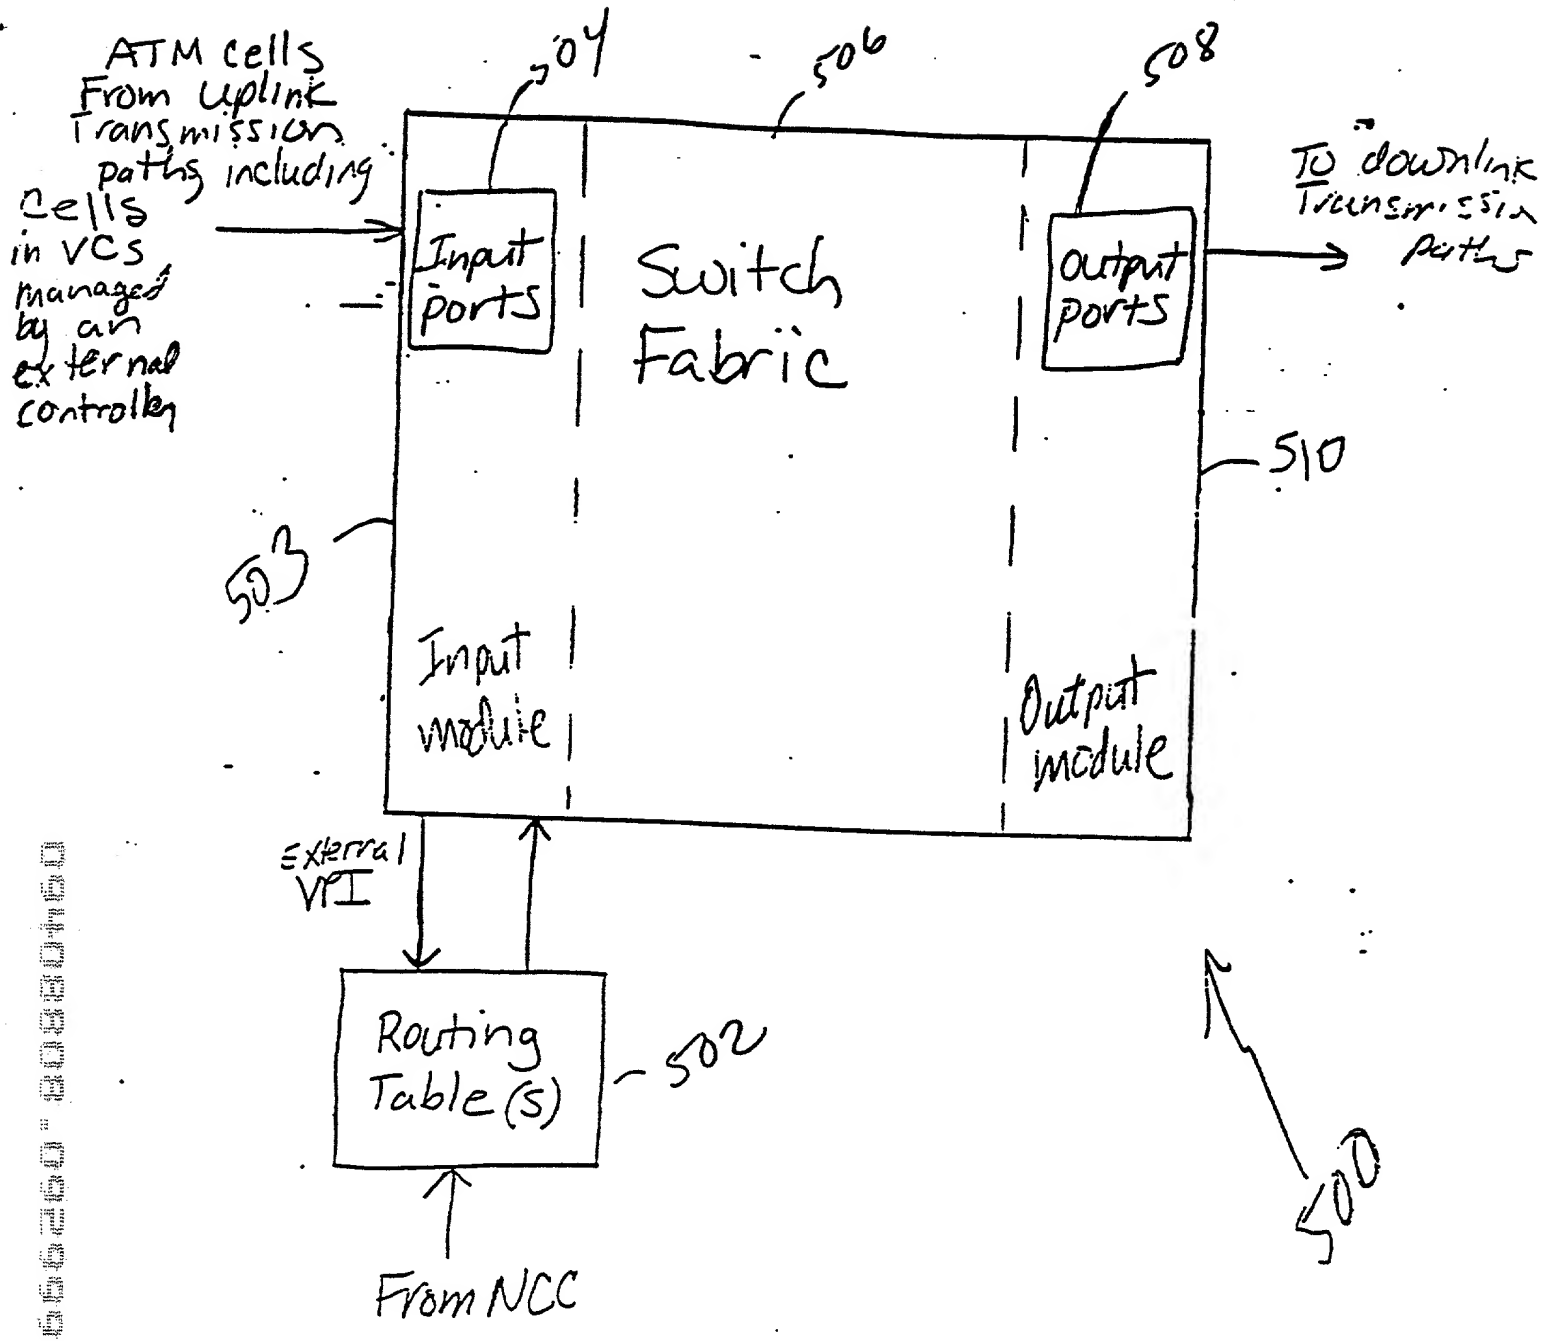 ATM cells
From uplink
Transmission
paths including
cells
in VCs
managed
by an
external
controller
504
506
508
To downlink
Transmission
paths
Input
ports
Switch
Fabric
output
ports
510
503
Input
module
Output
module
External
VPI
Routing
Table(s)
502
500
From NCC